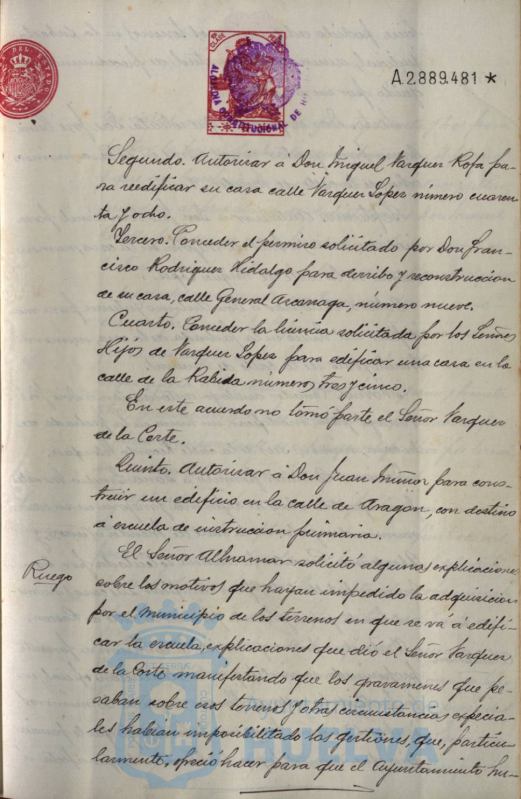 A.2.889.481 *
ALCALDIA CONSTITUCIONAL DE
Segundo. Autorizar á Don Miguel Vazquez Rofa pa-
ra reedificar su casa calle Vazquez Lopez número cuaren-
ta y ocho.
Tercero. Conceder el permiso solicitado por Don Fran-
cisco Rodriguez Hidalgo para derribo y reconstruccion
de su casa, calle General Azcarraga, número nueve.
Cuarto. Conceder la licencia solicitada por los Señores
Hijos de Vazquez Lopez para edificar una casa en la
calle de la Rabida números tres y cinco.
En este acuerdo no tomó parte el Señor Vazquez
de la Corte.
Quinto. Autorizar á Don Juan Muñoz para cons-
truir un edificio en la calle de Aragon, con destino
á escuela de instruccion primaria.
Ruego
El Señor Alhamar solicitó algunas explicaciones
sobre los motivos que hayan impedido la adquisicion
por el Municipio de los terrenos en que se va á edifi-
car la escuela, explicaciones que dió el Señor Vazquez
de la Corte manifestando que los gravamenes que pe-
saban sobre esos terrenos y otras circunstancias especia-
les habian imposibilitado las gestiones, que, particu-
larmente, ofreció hacer para que el Ayuntamiento hu-
Ayuntamiento de
HUELVA